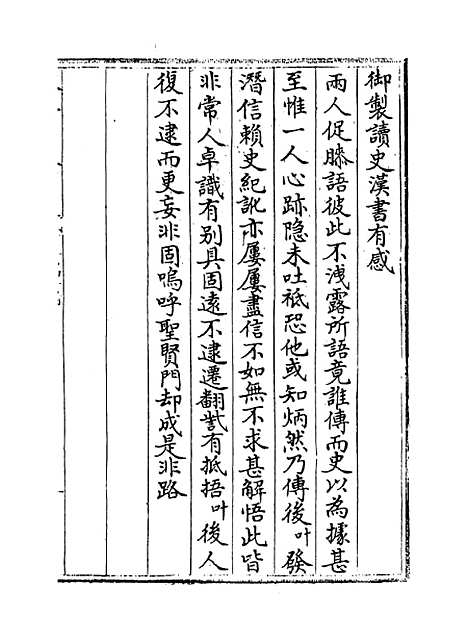 御製讀史漢書有感
兩人促膝語彼此不洩露所語竟誰傳而史以為據甚
至惟一人心跡隐未吐祗恐他或知炳然乃傳後叶發
潛信賴史紀訛亦屢屢盡信不如無不求甚解悟此皆
非常人卓識有别具固遠不逮遷翻訾有抵捂叶後人
復不逮而更妄非固嗚呼聖賢門却成是非路